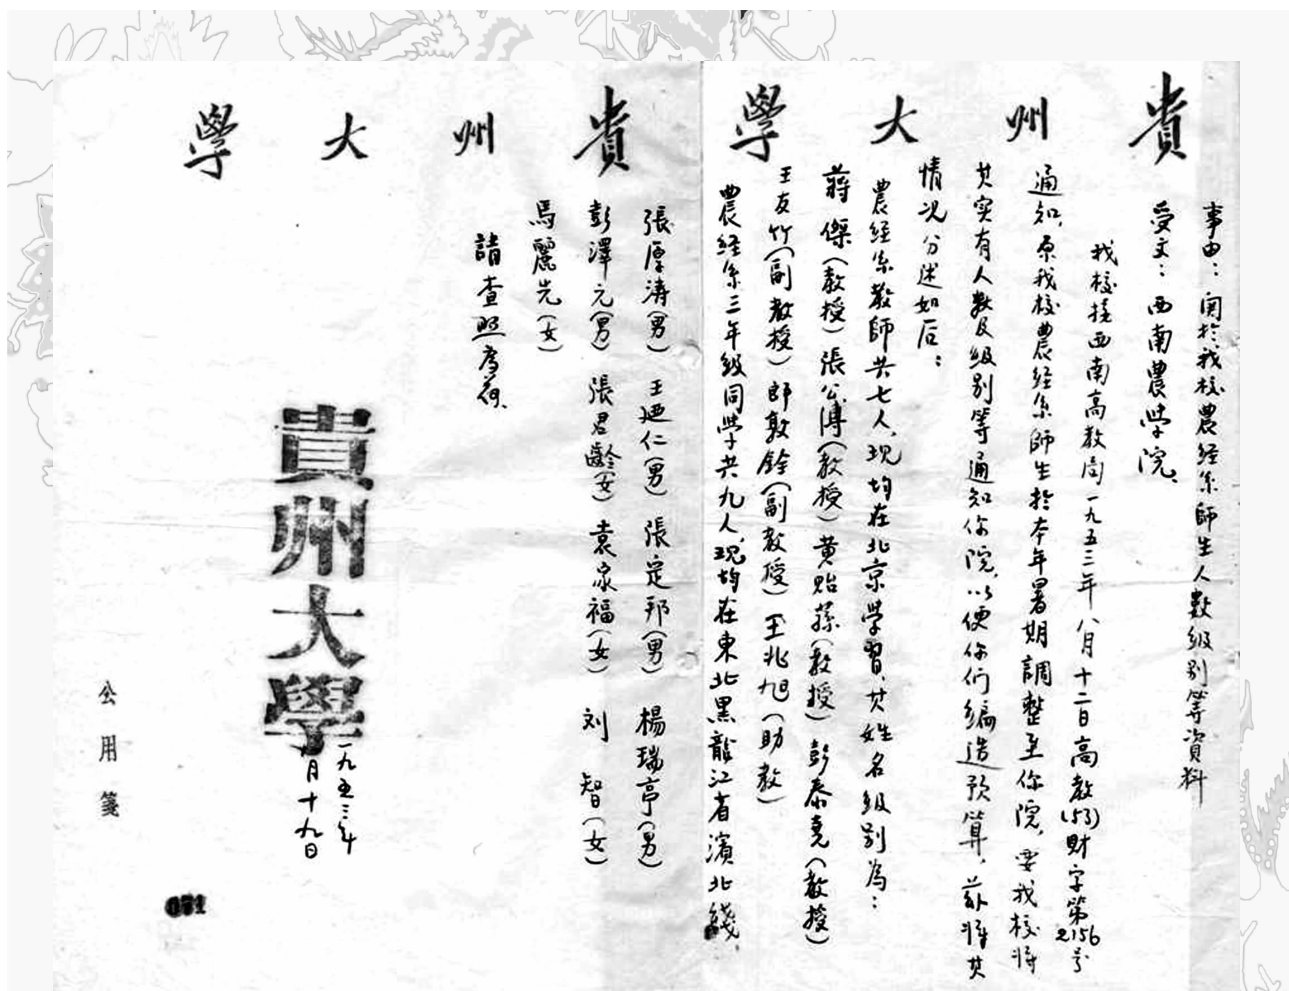 貴州大學
事由：関於我校農经系師生人数级别等資料
受文：西南農学院、
我校接西南高教局一九五三年八月十二日高教(53)財字第2156号
通知，原我校農经系師生於本年暑期調整至你院，要我校将
其实有人数及级别等通知你院，以便你们编造预算，兹将其
情况分述如后：
農经系教師共七人，现均在北京学習，其姓名级别为：
蒋傑（教授）張公溥（教授）黄貽蓀（教授）彭泰尧（教授）
王友竹（副教授）郎敦銓（副教授）王兆旭（助教）
農经系三年级同学共九人，現均在東北黑龍江省濱北綫、
貴州大學
張厚濤（男） 王廼仁（男） 張定邦（男） 楊瑞亭（男）
彭澤元（男） 張君齡（女） 袁家福（女） 刘智（女）
馬麗先（女）
請查照为荷、
貴州大學
一九五三年
八月十九日
公用箋
071